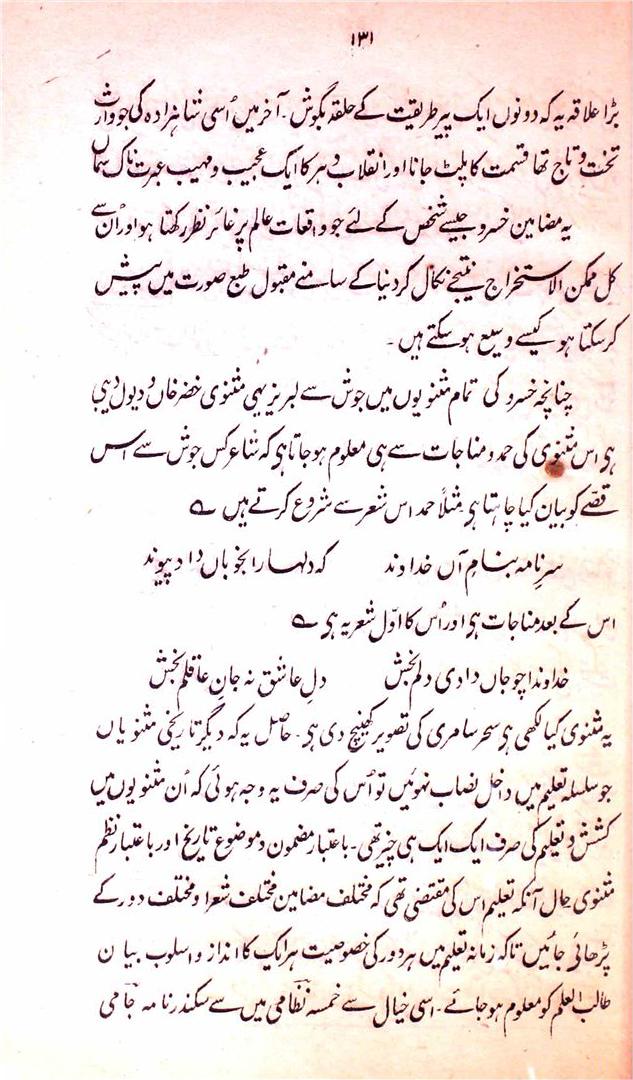 ۱۳۱
بڑا علاقہ یہ کہ دونوں ایک پیر طریقت کے حلقہ بگوش ۔ آخر میں اُسی شاہزادہ کی جو وارث
تخت و تاج تھا قسمت کا پلٹ جانا اور انقلاب دہر کا ایک عجیب و مہیب عبرت ناک سماں
یہ مضامین خسرو جیسے شخص کے لئے جو واقعات عالم پر غائر نظر رکھتا ہو اور اُن سے
کل ممکن الاستخراج نتیجے نکال کر دنیا کے سامنے مقبول طبع صورت میں پیش
کر سکتا ہو کیسے وسیع ہو سکتے ہیں ۔
چنانچہ خسرو کی تمام مثنویوں میں جوش سے لبریز یہی مثنوی خضر خاں و دیول دیبی
ہی اس مثنوی کی حمد و مناجات سے ہی معلوم ہو جاتا ہی کہ شاعر کس جوش سے اس
قصّے کو بیان کیا چاہتا ہی مثلاً حمد اس شعر سے شروع کرتے ہیں ؎
سر نامہ بنامِ آں خداوند کہ دلہا را بخوباں داد پیوند
اس کے بعد مناجات ہی اور اُس کا اوّل شعر یہ ہی ؎
خداوندا چو جاں دادی دلم بخش دلِ عاشق نہ جانِ عاقلم بخش
یہ مثنوی کیا لکھی ہی سحر سامری کی تصویر کھینچ دی ہی ۔ حاصل یہ کہ دیگر تاریخی مثنویاں
جو سلسلہ تعلیم میں داخل نصاب نہوئیں تو اُس کی صرف یہ وجہ ہوئی کہ اُن مثنویوں میں
کشش و تعلیم کی صرف ایک ایک ہی چیز تھی ۔ باعتبار مضمون و موضوع تاریخ اور باعتبار نظم
مثنوی حال آنکہ تعلیم اس کی مقتضی تھی کہ مختلف مضامین مختلف شعرا و مختلف دور کے
پڑھائی جائیں تاکہ زمانہ تعلیم میں ہر دور کی خصوصیت ہر ایک کا انداز و اسلوب بیان
طالب العلم کو معلوم ہو جائے ۔ اسی خیال سے خمسہ نظامی میں سے سکندر نامہ جامی